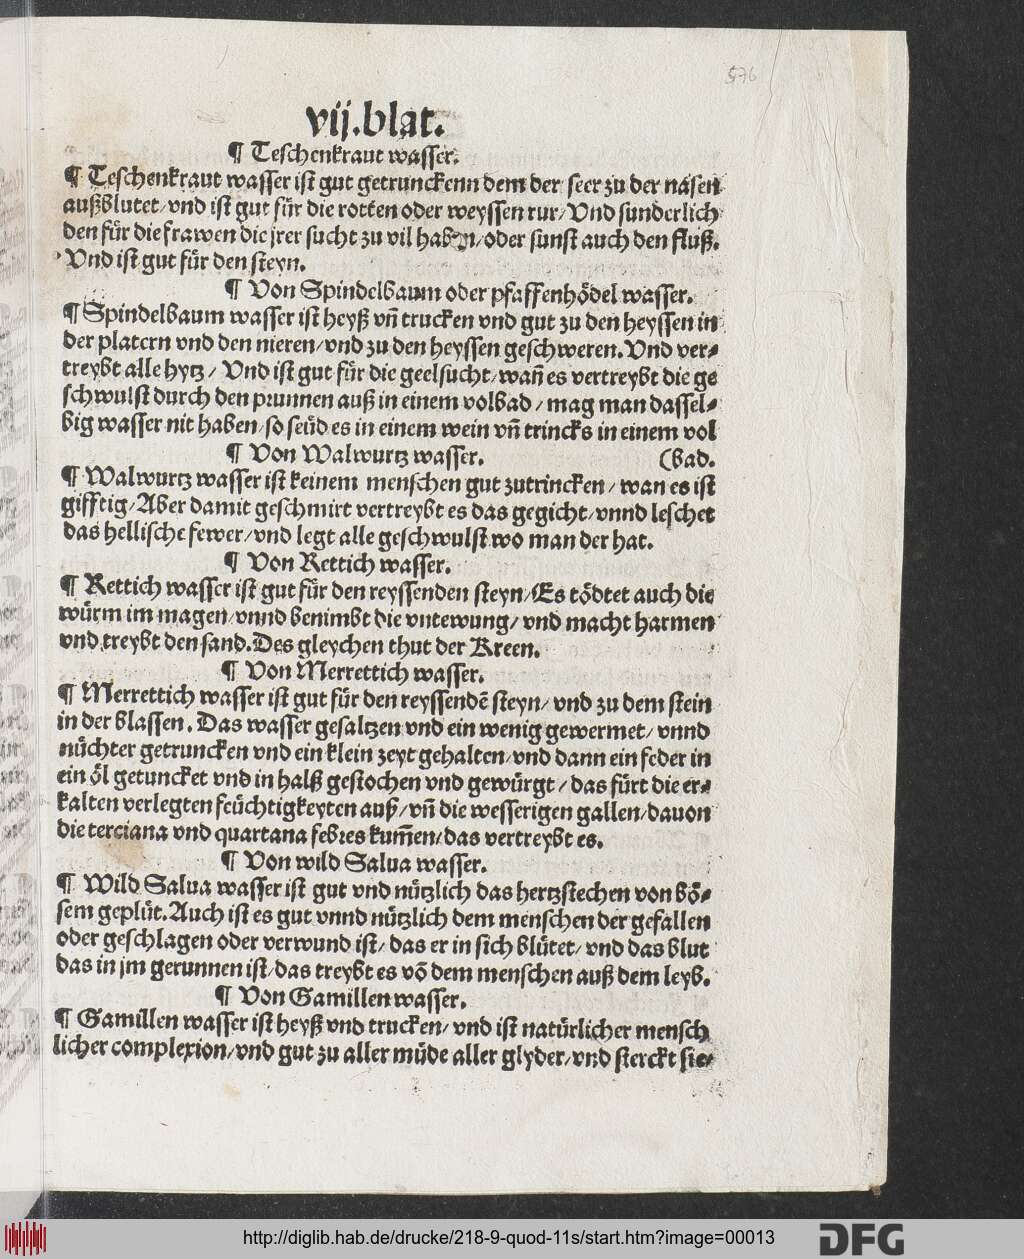 576
vij.blat.
¶ Teschenkraut wasser.
¶ Teschenkraut wasser ist gut getrunckenn dem der seer zu der nasen
außblutet/vnd ist gut für die rotten oder weyssen rur/Vnd sunderlich
den für die frawen die jrer sucht zu vil haben/oder sunst auch den fluß.
Vnd ist gut für den steyn.
¶ Von Spindelbaum oder pfaffenhödel wasser.
¶ Spindelbaum wasser ist heyß vñ trucken vnd gut zu den heyssen in
der platern vnd den nieren/vnd zu den heyssen geschweren.Vnd ver⸗
treybt alle hytz/ Vnd ist gut für die geelsucht/wañ es vertreybt die ge
schwulst durch den prunnen auß in einem volbad/ mag man dassel⸗
big wasser nit haben/so seüd es in einem wein vñ trincks in einem vol
¶ Von Walwurtz wasser. (bad.
¶ Walwurtz wasser ist keinem menschen gut zutrincken/ wan es ist
gifftig/Aber damit geschmirt vertreybt es das gegicht/vnnd leschet
das hellische fewer/vnd legt alle geschwulst wo man der hat.
¶ Von Rettich wasser.
¶ Rettich wasser ist gut für den reyssenden steyn/Es tödtet auch die
würm im magen/vnnd benimbt die vntewung/ vnd macht harmen
vnd treybt den sand.Des gleychen thut der Kreen.
¶ Von Merrettich wasser.
¶ Merrettich wasser ist gut für den reyssendē steyn/ vnd zu dem stein
in der blassen. Das wasser gesaltzen vnd ein wenig gewermet/ vnnd
nüchter getruncken vnd ein klein zeyt gehalten/vnd dann ein feder in
ein öl getuncket vnd in halß gestochen vnd gewürgt/ das fürt die er⸗
kalten verlegten feüchtigkeyten auß/vñ die wesserigen gallen/dauon
die terciana vnd quartana febres kum̃en/das vertreybt es.
¶ Von wild Salua wasser.
¶ Wild Salua wasser ist gut vnd nützlich das hertzstechen von bö⸗
sem geplüt.Auch ist es gut vnnd nützlich dem menschen der gefallen
oder geschlagen oder verwund ist/ das er in sich blütet/ vnd das blut
das in jm gerunnen ist/das treybt es vō dem menschen auß dem leyb.
¶ Von Gamillen wasser.
¶ Gamillen wasser ist heyß vnd trucken/ vnd ist natürlicher mensch
licher complexion/vnd gut zu aller müde aller glyder/vnd sterckt sie/
http://diglib.hab.de/drucke/218-9-quod-11s/start.htm?image=00013
DFG